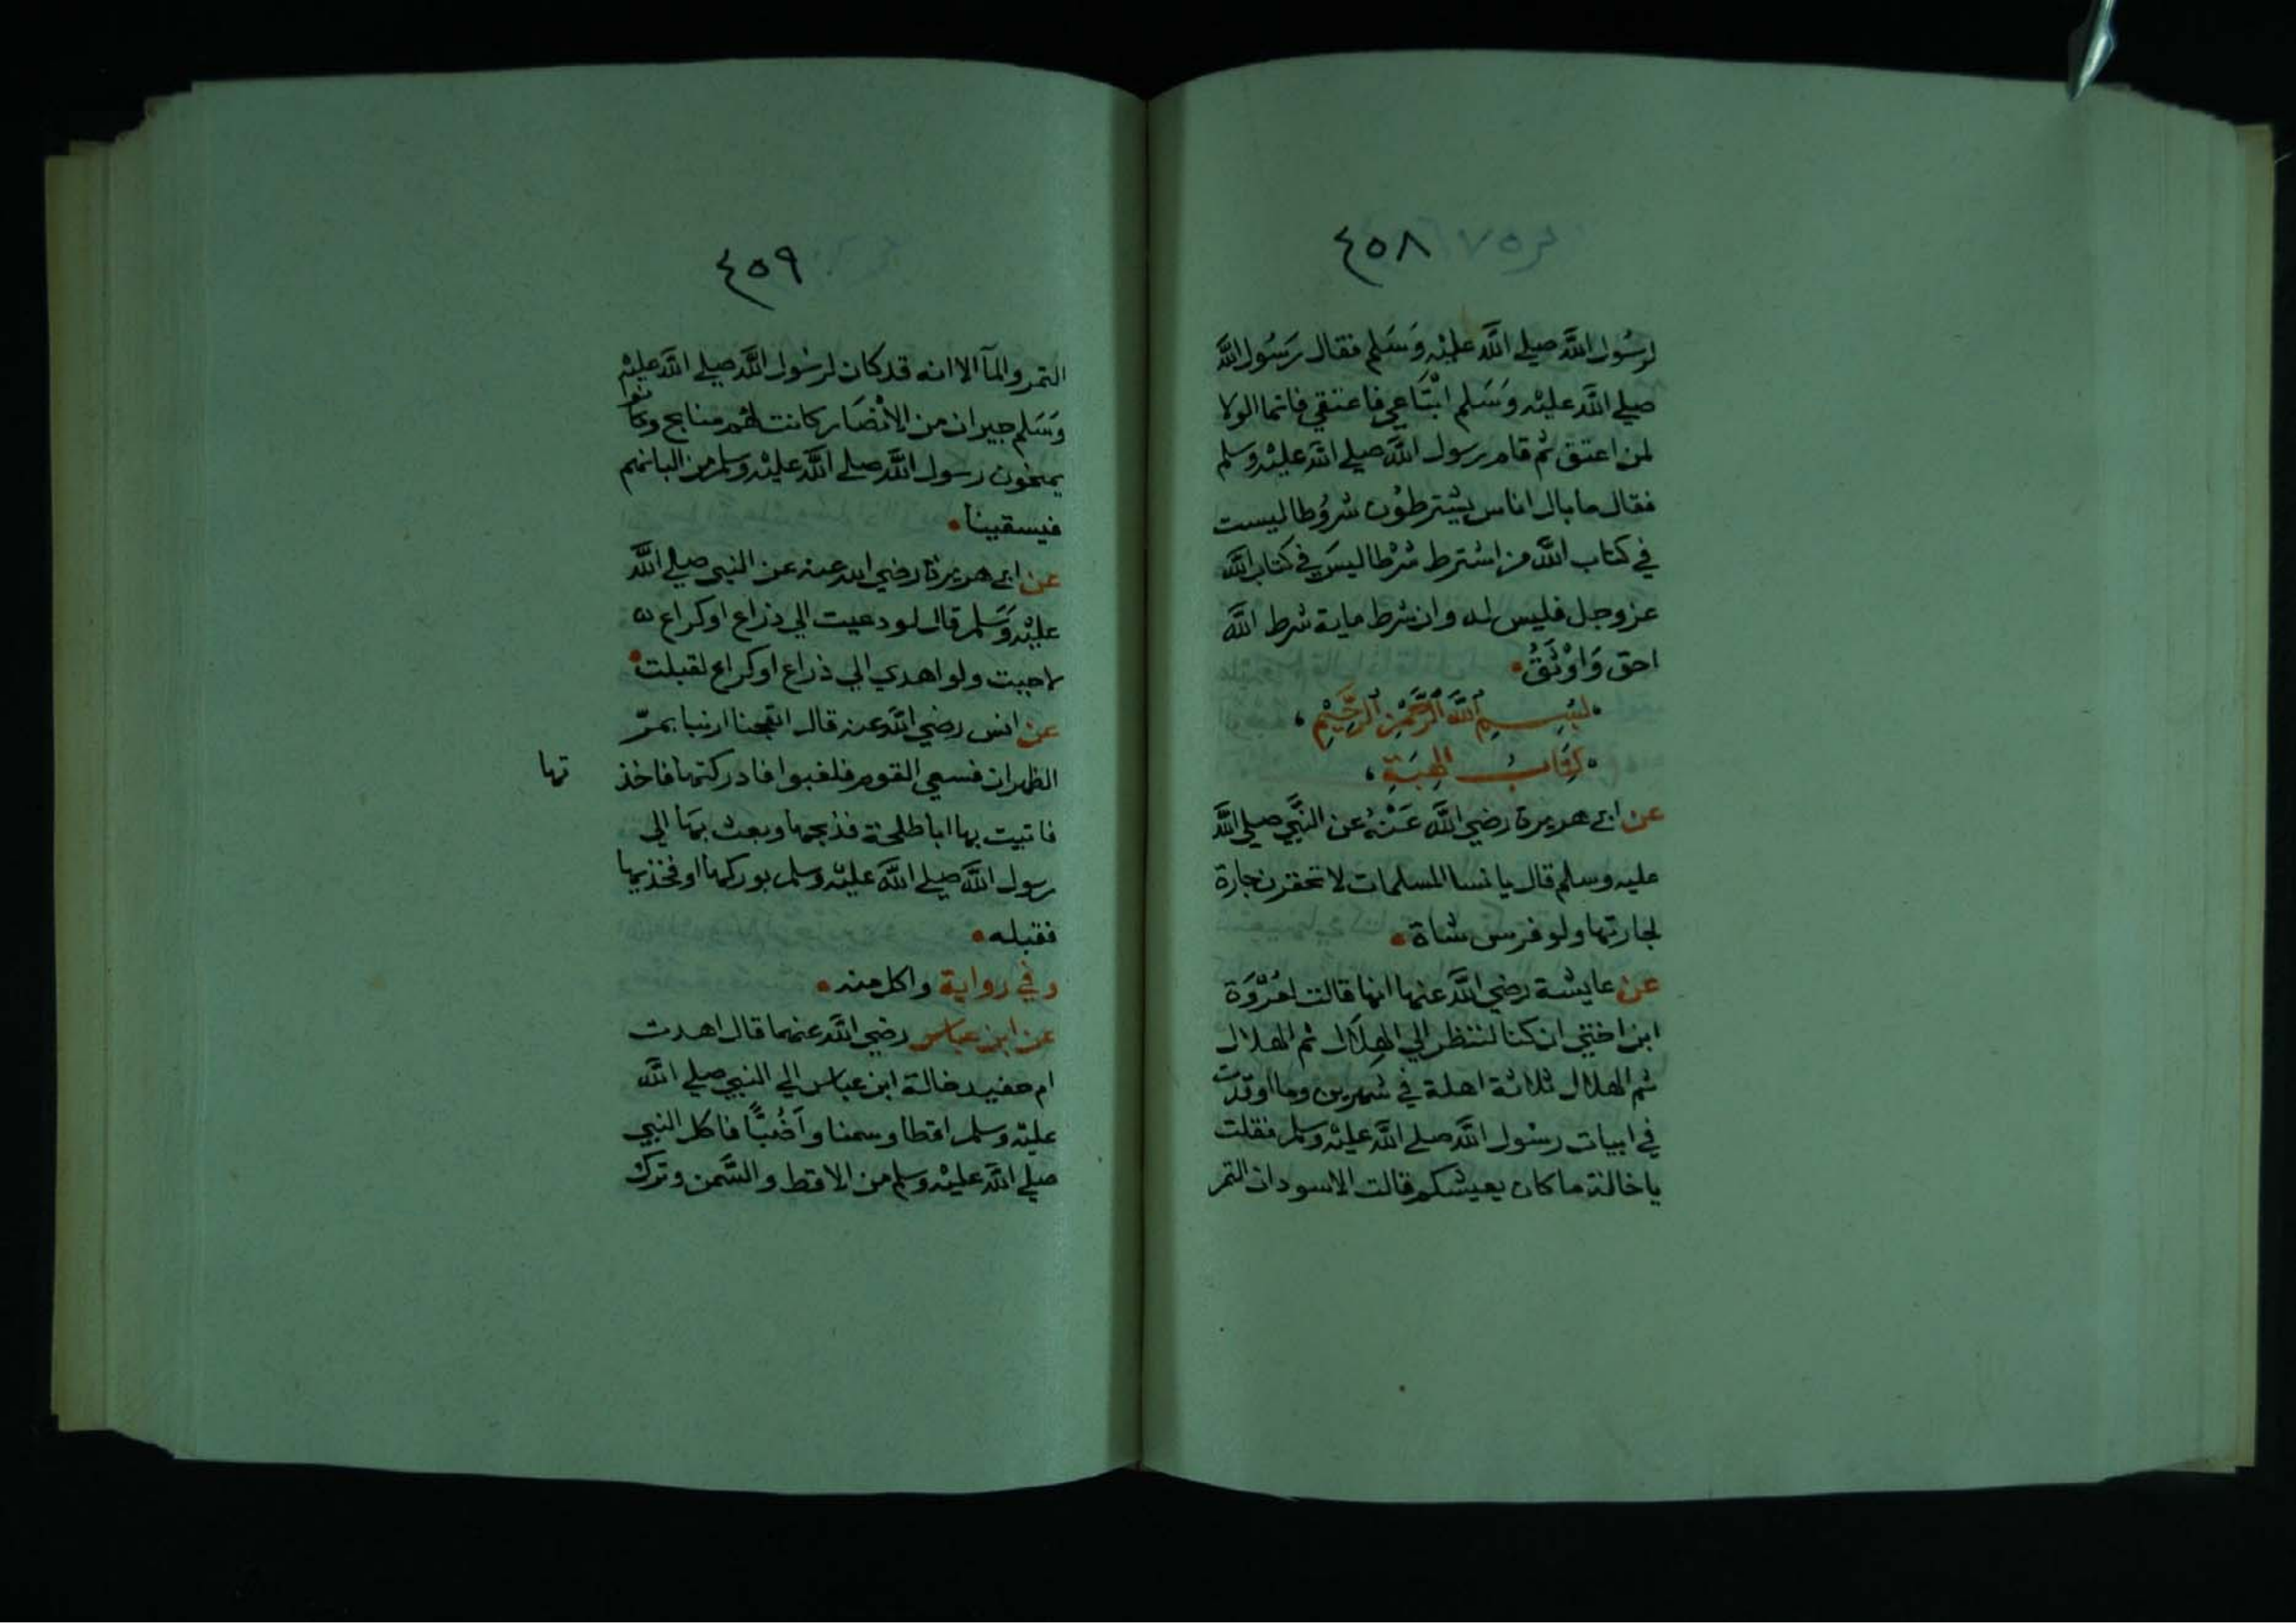 ٤٥٨
لرسُول اللَّه صلي اللَّه عليْه وَسَلم فقال رَسُول اللَّه
صلي اللَّه عليْه وَسَلم ابْتَاعي فاعتقي فانما الولا
لمن اعتق ثم قام رسول اللَّه صلي اللَّه عليْه وسلم
فقال ما بال اناس يشترطوْن شرُوطا ليست
في كتاب اللَّه من اشترط شرْطا ليسَ في كتاب اللَّه
عز وجل فليس له وان شرط ماية شرط اللَّه
احق وَاوْثَقُ
بسْمِ اللَّهِ الرَّحْمٰنِ الرَّحِيْمِ
كِتَابُ الهِبَةِ
عن ابي هريرة رضي اللَّه عَنْهُ عن النَّبي صلي اللَّه
عليه وسلم قال يا نسا المسلمات لا تحقرن جارة
لجارتها ولو فرسن شاة
عن عايشة رضي اللَّه عنها انها قالت لعُرْوَة
ابن اختي ان كنا لننظر الي الهِلَال ثم الهلال
ثم الهلال ثلاثة اهلة في شهرين وما اوقدت
في ابيات رسُول اللَّه صلي اللَّه عليْه وسلم فقلت
يا خالة ما كان يعيشكم قالت الاسودان التمر
٤٥٩
التمر والمآ الا انه قد كان لرسُول اللَّه صلي اللَّه عليْه
وَسَلم جيران من الانْصَار كانت لهُم منايح وكانوا
يمنحون رسول اللَّه صلي اللَّه عليْه وسلم من البانهم
فيسقينا
عن ابي هريرة رضي الله عنه عن النبي صلي اللَّه
عليْه وَسَلم قال لو دعيت الي ذراع او كراع
لاجبت ولو اهدي الي ذراع او كراع لقبلت
عن انس رضي اللَّه عنه قال انفجنا ارنبا بمرّ
الظهران فسعي القوم فلغبوا فادركتها فاخذ تها
فاتيت بها ابا طلحة فذبحها وبعث بهَا الي
رسول اللَّه صلي اللَّه عليْه وسلم بوركها او فخذيها
فقبله
وفي رواية واكل منه
عن ابن عباس رضي اللَّه عنهما قال اهدت
ام حفيد خالة ابن عباس الي النبي صلي اللَّه
عليْه وسلم اقطا وسمنا وَاَضُبًّا فاكل النبي
صلي اللَّه عليْه وسلم من الاقط والسَّمن وترك